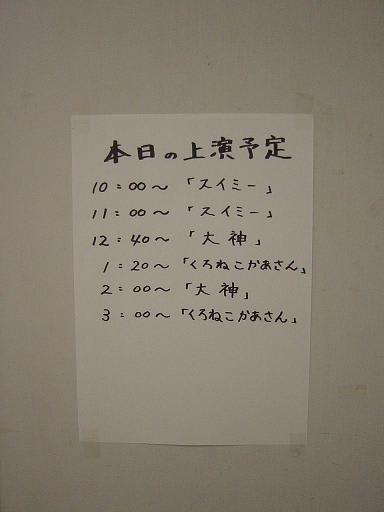 本日の上演予定
10:00〜「スイミー」
11:00〜「スイミー」
12:40〜「大神」
1:20〜「くろねこかあさん」
2:00〜「大神」
3:00〜「くろねこかあさん」